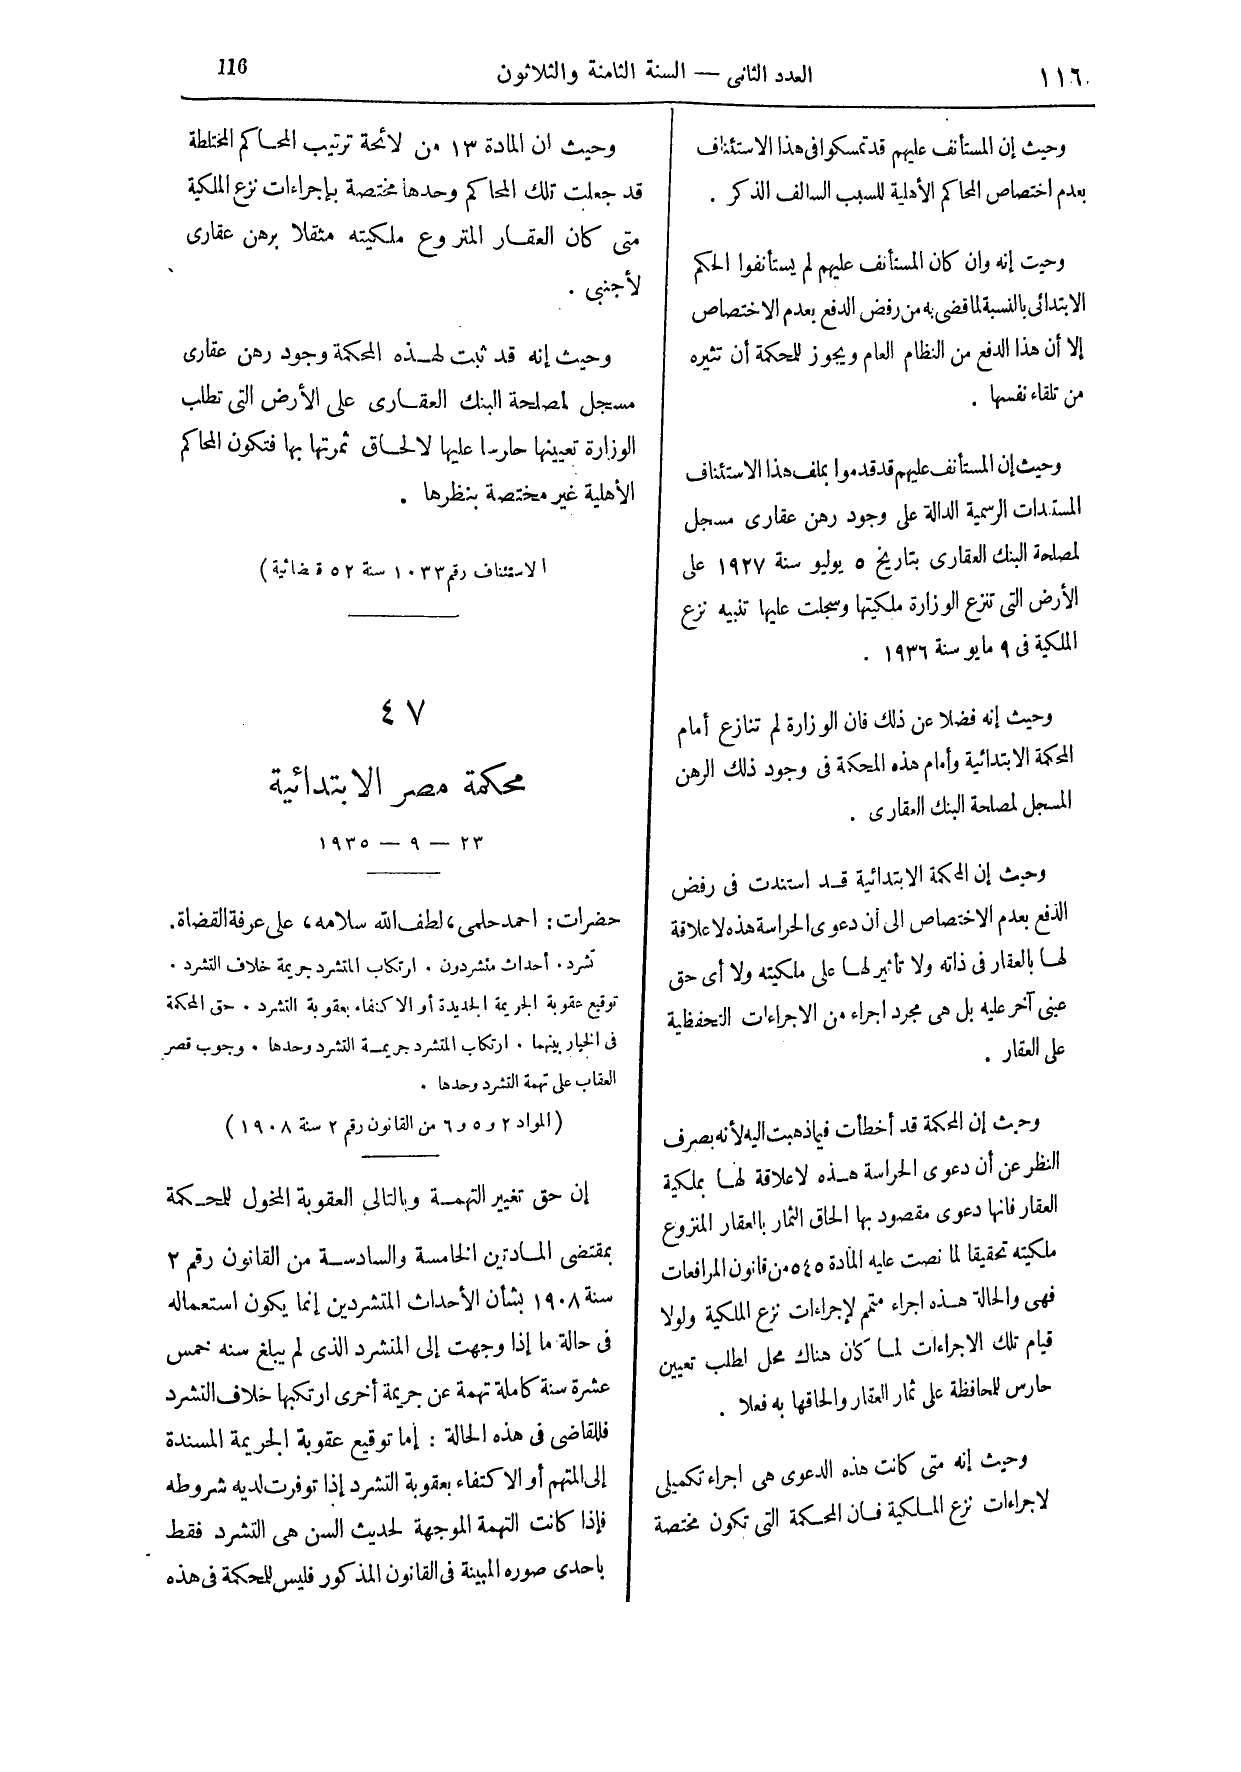 ١١٦
العدد الثانى — السنة الثامنة والثلاثون
116
وحيث إن المستأنف عليهم قد تمسكوا فى هذا الاستئناف
بعدم اختصاص المحاكم الأهلية للسبب السالف الذكر .
وحيث إنه وان كان المستأنف عليهم لم يستأنفوا الحكم
الابتدائى بالنسبة لما قضى به من رفض الدفع بعدم الاختصاص
إلا أن هذا الدفع من النظام العام ويجوز للمحكمة أن تثيره
من تلقاء نفسها .
وحيث إن المستأنف عليهم قد قدموا بملف هذا الاستئناف
المستندات الرسمية الدالة على وجود رهن عقارى مسجل
لمصلحة البنك العقارى بتاريخ ٥ يوليو سنة ١٩٢٧ على
الأرض التى تنزع الوزارة ملكيتها وسجلت عليها تنبيه نزع
الملكية فى ٩ مايو سنة ١٩٣٦ .
وحيث إنه فضلا عن ذلك فان الوزارة لم تنازع أمام
المحكمة الابتدائية وأمام هذه المحكمة فى وجود ذلك الرهن
المسجل لمصلحة البنك العقارى .
وحيث إن المحكمة الابتدائية قد استندت فى رفض
الدفع بعدم الاختصاص الى أن دعوى الحراسة هذه لا علاقة
لها بالعقار فى ذاته ولا تأثير لها على ملكيته ولا أى حق
عينى آخر عليه بل هى مجرد اجراء من الاجراءات التحفظية
على العقار .
وحيث إن المحكمة قد أخطأت فيما ذهبت اليه لأنه بصرف
النظر عن أن دعوى الحراسة هذه لا علاقة لها بملكية
العقار فانها دعوى مقصود بها الحاق الثمار بالعقار المنزوع
ملكيته تحقيقا لما نصت عليه المادة ٥٤٥ من قانون المرافعات
فهى والحالة هذه اجراء متمم لإجراءات نزع الملكية ولولا
قيام تلك الاجراءات لما كان هناك محل لطلب تعيين
حارس للمحافظة على ثمار العقار والحاقها به فعلا .
وحيث إنه متى كانت هذه الدعوى هى اجراء تكميلى
لاجراءات نزع الملكية فان المحكمة التى تكون مختصة
وحيث ان المادة ١٣ من لائحة ترتيب المحاكم المختلطة
قد جعلت تلك المحاكم وحدها مختصة بإجراءات نزع الملكية
متى كان العقار المنزوع ملكيته مثقلا برهن عقارى
لأجنبى .
وحيث إنه قد ثبت لهذه المحكمة وجود رهن عقارى
مسجل لمصلحة البنك العقارى على الأرض التى تطلب
الوزارة تعيينها حارسا عليها لالحاق ثمرتها بها فتكون المحاكم
الأهلية غير مختصة بنظرها .
الاستئناف رقم ١٠٣٣ سنة ٥٢ قضائية)
٤٧
محكمة مصر الابتدائية
٢٣ — ٩ — ١٩٣٥
حضرات : احمد حلمى، لطف الله سلامه، على عرفة القضاة.
تشرد . أحداث متشردون . ارتكاب المتشرد جريمة خلاف التشرد .
توقيع عقوبة الجريمة الجديدة أو الاكتفاء بعقوبة التشرد . حق المحكمة
فى الخيار بينهما . ارتكاب المتشرد جريمة التشرد وحدها . وجوب قصر
العقاب على تهمة التشرد وحدها .
(المواد ٢ و ٥ و ٦ من القانون رقم ٢ سنة ١٩٠٨)
إن حق تغيير التهمة وبالتالى العقوبة المخول للمحكمة
بمقتضى المادتين الخامسة والسادسة من القانون رقم ٢
سنة ١٩٠٨ بشأن الأحداث المتشردين إنما يكون استعماله
فى حالة ما إذا وجهت إلى المتشرد الذى لم يبلغ سنه خمس
عشرة سنة كاملة تهمة عن جريمة أخرى ارتكبها خلاف التشرد
فللقاضى فى هذه الحالة : إما توقيع عقوبة الجريمة المسندة
إلى المتهم أو الاكتفاء بعقوبة التشرد إذا توفرت لديه شروطه
فإذا كانت التهمة الموجهة لحديث السن هى التشرد فقط
باحدى صوره المبينة فى القانون المذكور فليس للمحكمة فى هذه